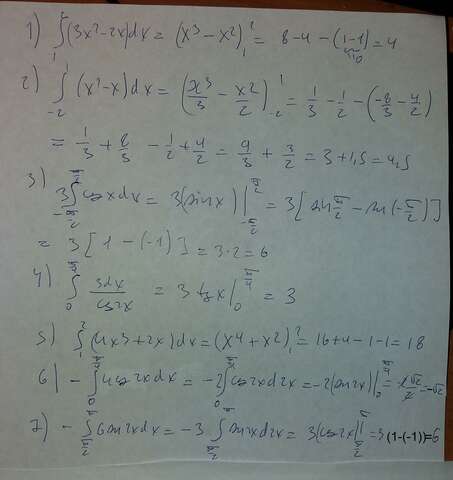 1) ∫₁² (3x²-2x)dx = (x³-x²)₁² = 8-4-(1-1) = 4
0
2) ∫₋₂¹ (x²-x)dx = (x³/3 - x²/2)₋₂¹ = 1/3 - 1/2 - (-8/3 - 4/2)
= 1/3 + 8/3 - 1/2 + 4/2 = 9/3 + 3/2 = 3+1,5 = 4,5
3) 3∫ cosxdx = 3(sinx)| = 3[sin π/2 - sin(-π/2)]
= 3[1-(-1)] = 3·2 = 6
4) ∫ 3dx/cos²x = 3 tgx|₀ = 3
5) ∫₁² (4x³+2x)dx = (x⁴+x²)₁² = 16+4-1-1 = 18
6) -∫ 4cos2xdx = -2∫cos2xd2x = -2(sin2x)|₀
7) -∫ 6sin2xdx = -3∫ sin2xd2x = 3(cos2x)| = 3(1-(-1))=6